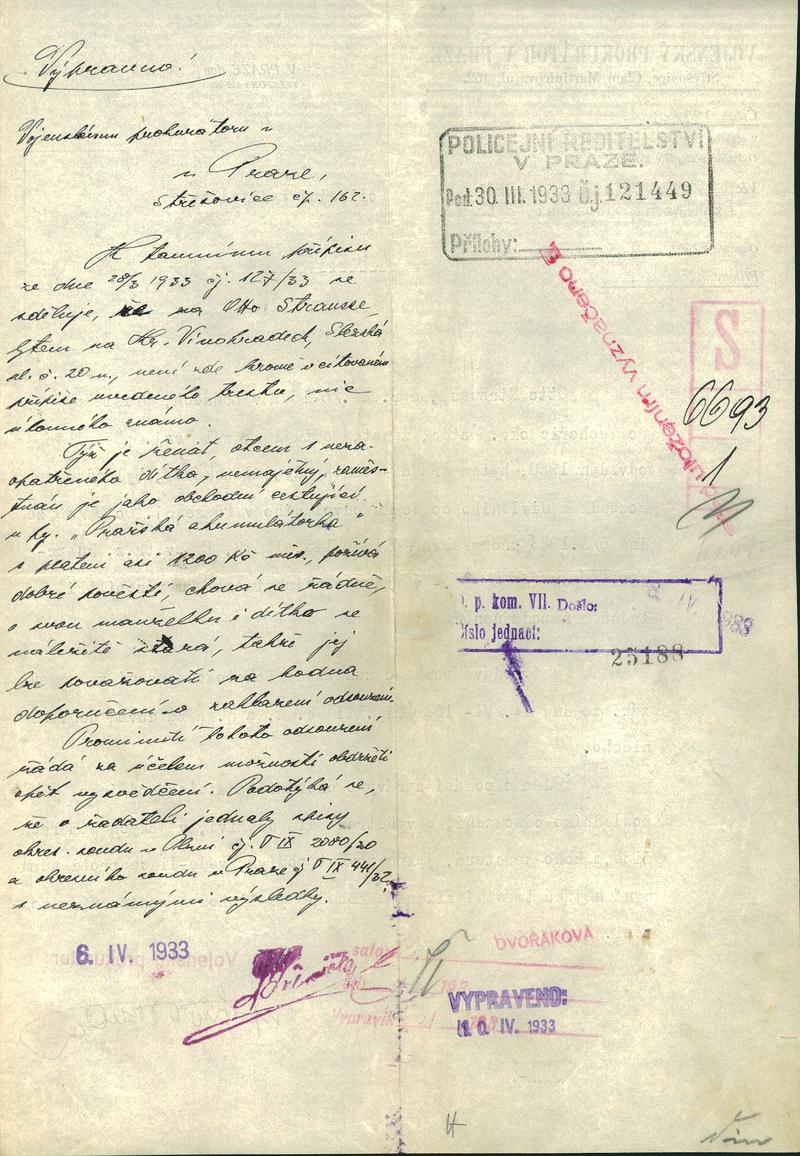 Vypraveno!
Vojenskému prokurátoru v
v Praze,
Střešovice čp. 162.
K tamnímu přípisu
ze dne 28/3 1933 čj. 127/33 se
sděluje, že na Otto Strausse,
bytem na Kr. Vinohradech, Slezská
ul. č. 20 n., není zde kromě v citovaném
přípise uvedeného trestu, nic
úhonného známo.
Týž je ženat, otcem 1 neza-
opatřeného dítka, nemajetný, zaměs-
tnán je jako obchodní cestující
u fy. "Pražská akumulátorka"
s platem asi 1200 Kč měs., požívá
dobré pověsti, chová se řádně,
o svou manželku i dítko se
náležitě stará, takže jej
lze považovati za hodna
doporučení o zahlazení odsouzení.
Prominutí tohoto odsouzení
žádá za účelem možnosti obdržeti
opět vysvědčení. Podotýká se,
že o žadateli jednaly spisy
okres. soudu v Plzni čj. T IX 2080/20
a okresního soudu v Praze čj T IX 441/32
s neznámými výsledky.
6. IV. 1933
POLICEJNÍ ŘEDITELSTVÍ
V PRAZE.
Pod. 30. III. 1933 č.j. 121449
Přílohy:
uložením vyznačeno
S
6693
1
p. kom. VII. Došlo:
IV.
Číslo jednací:
25188
DVOŘÁKOVA
VYPRAVENO:
10. IV. 1933